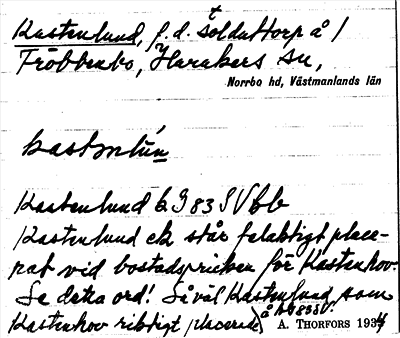 Kastenlund, f.d. soldattorp å
Fröbbenbo, Harakers sn,
Norrbo hd, Västmanlands län
Kastenlund bg 83 SVbb
Kastenlund ek står felaktigt place-
rat vid bostadspricken för Kastenhov.
Se detta ord! Såväl Kastenlund som
Kastenhov riktigt placerade å
A. THORFORS 1934